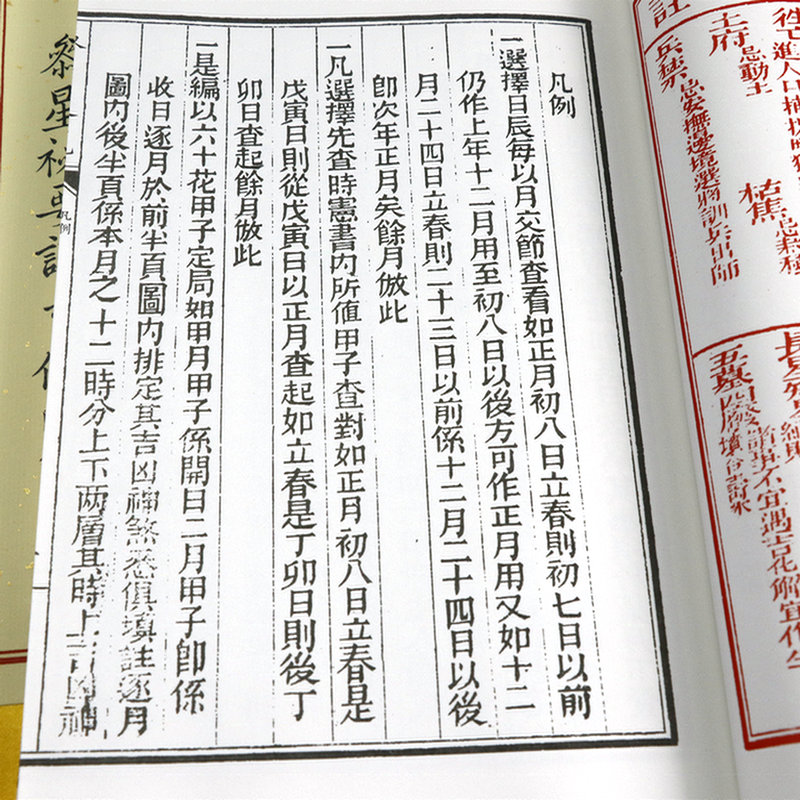 註
土府忌動土
枯焦忌栽種
兵禁忌安撫邊境選將訓兵出師
五墓
四廢諸事不宜遇吉花解宜作
凡例
一選擇日辰每以月交節查看如正月初八日立春則初七日以前
仍作上年十二月用至初八日以後方可作正月用又如十二
月二十四日立春則二十三日以前係十二月二十四日以後
卽次年正月矣餘月倣此
一凡選擇先查時憲書內所值甲子查對如正月初八日立春是
戊寅日則從戊寅日以正月查起如立春是丁卯日則後丁
卯日查起餘月倣此
一是編以六十花甲子定局如甲月甲子係開日二月甲子卽係
收日逐月於前半頁圖內排定其吉凶神煞悉俱填註逐月
圖內後半頁係本月之十二時分上下两層其時上吉凶神
凡例
參星祕要